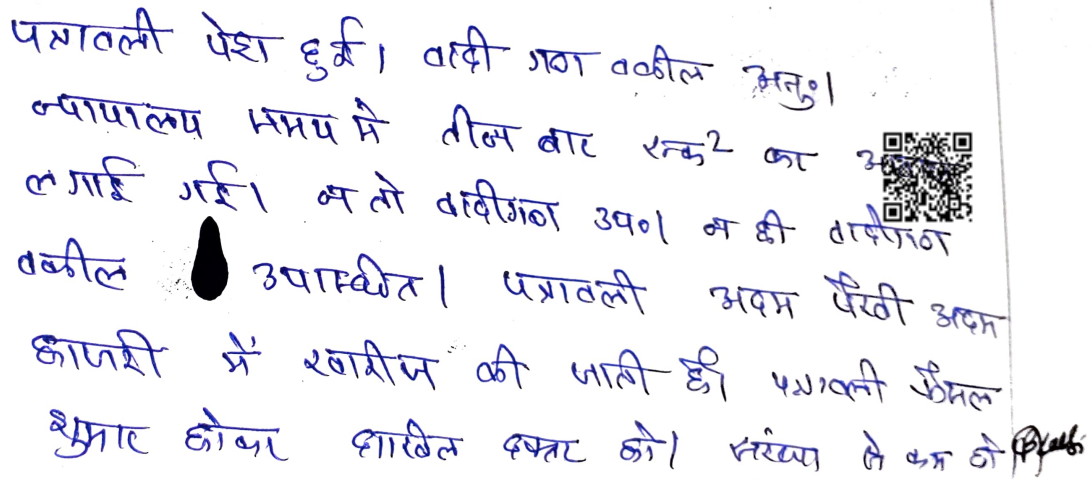 पत्रावली पेश हुई। वादी गण वकील अनु०।
न्यायालय समय मे तीन बार रूक2 कर
लगाई गई। न तो वादीगण उप०। न ही वादीगण
वकील उपास्थीत। पत्रावली अदम पैरवी अदम
हाजरी में खारीज की जाती है। पत्रावली फैसल
शुमार होकर दाखिल दफ्तर हो। संख्या से कम हो